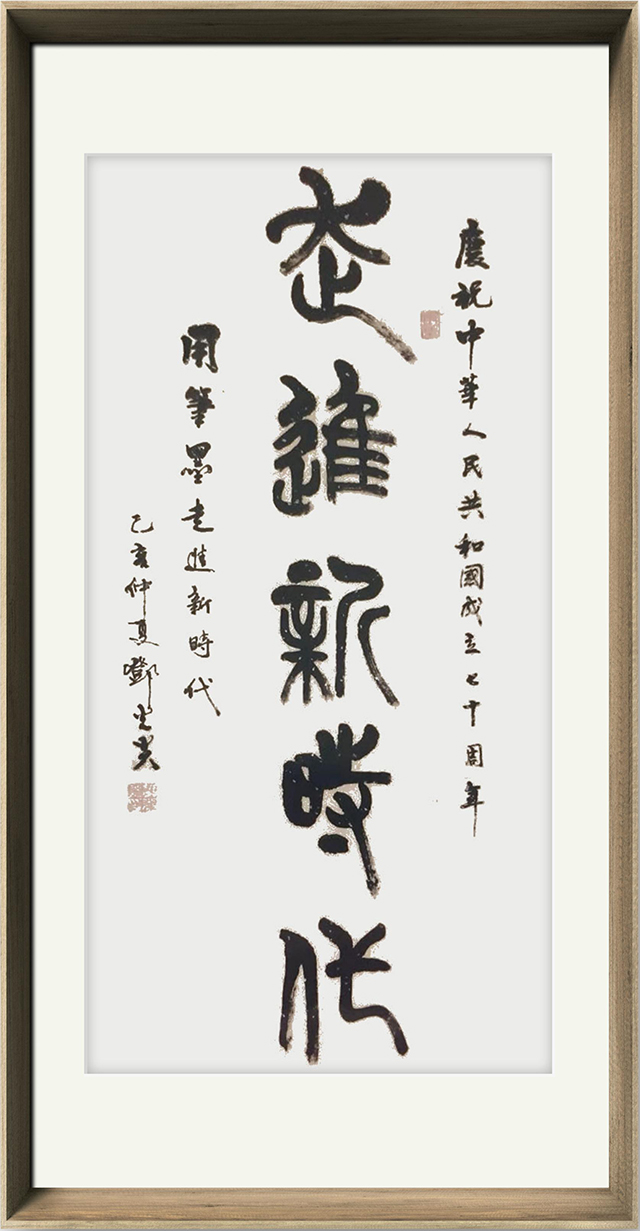 慶祝中華人民共和國成立七十周年
走進新時代
用筆墨走進新時代
己亥仲夏鄧